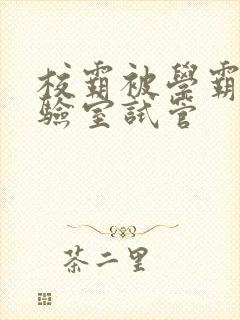 校霸被學霸
驗室試管
茶二里